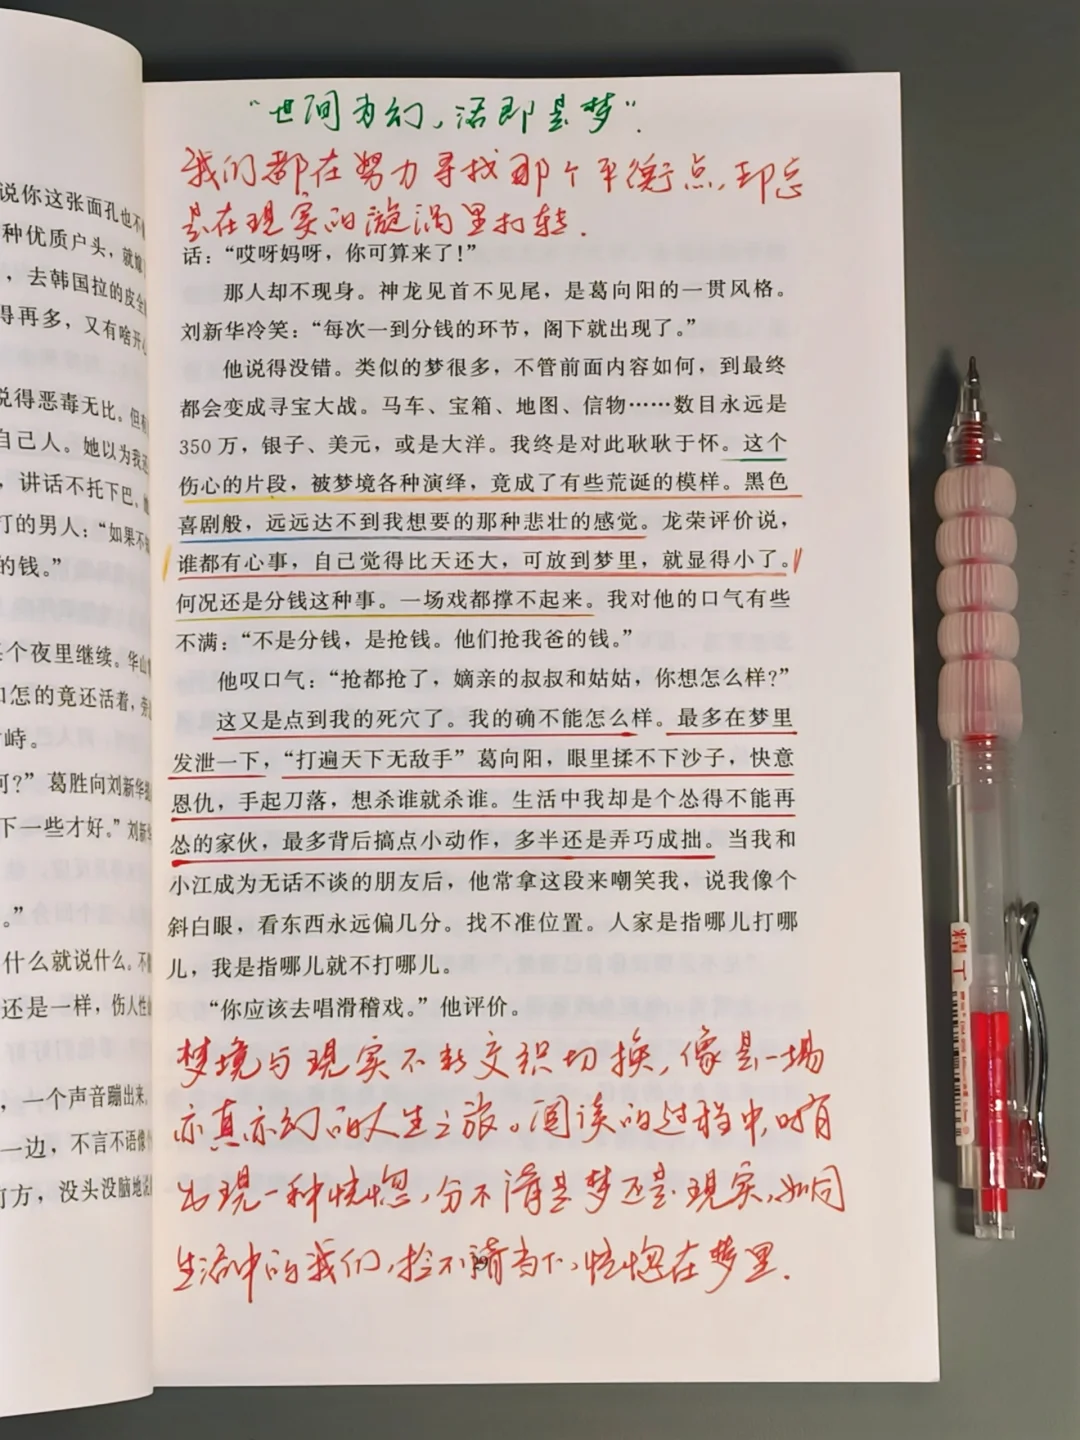 说你这张面孔也不
种优质户头，就嫁
，去韩国拉的皮全
得再多，又有啥开心
说得恶毒无比。但
自己人。她以为我还
，讲话不托下巴。
打的男人：“如果不
的钱。”
个夜里继续。华山
口怎的竟还活着，旁
峙。
何？”葛胜向刘新华
下一些才好。”刘新华
。”
什么就说什么。不
还是一样，伤人性
，一个声音蹦出来。
一边，不言不语像
方，没头没脑地说
“世间为幻，活即是梦”.
我们都在努力寻找那个平衡点，却总
是在现实的漩涡里打转.
话：“哎呀妈呀，你可算来了！”
那人却不现身。神龙见首不见尾，是葛向阳的一贯风格。
刘新华冷笑：“每次一到分钱的环节，阁下就出现了。”
他说得没错。类似的梦很多，不管前面内容如何，到最终
都会变成寻宝大战。马车、宝箱、地图、信物……数目永远是
350万，银子、美元，或是大洋。我终是对此耿耿于怀。这个
伤心的片段，被梦境各种演绎，竟成了有些荒诞的模样。黑色
喜剧般，远远达不到我想要的那种悲壮的感觉。龙荣评价说，
谁都有心事，自己觉得比天还大，可放到梦里，就显得小了。
何况还是分钱这种事。一场戏都撑不起来。我对他的口气有些
不满：“不是分钱，是抢钱。他们抢我爸的钱。”
他叹口气：“抢都抢了，嫡亲的叔叔和姑姑，你想怎么样？”
这又是点到我的死穴了。我的确不能怎么样。最多在梦里
发泄一下，“打遍天下无敌手”葛向阳，眼里揉不下沙子，快意
恩仇，手起刀落，想杀谁就杀谁。生活中我却是个怂得不能再
怂的家伙，最多背后搞点小动作，多半还是弄巧成拙。当我和
小江成为无话不谈的朋友后，他常拿这段来嘲笑我，说我像个
斜白眼，看东西永远偏几分。找不准位置。人家是指哪儿打哪
儿，我是指哪儿就不打哪儿。
“你应该去唱滑稽戏。”他评价。
梦境与现实不断交织切换，像是一场
亦真亦幻的人生之旅。阅读的过程中，时有
出现一种恍惚，分不清是梦还是现实，如同
生活中的我们，捡不清当下，恍惚在梦里.
29
精工